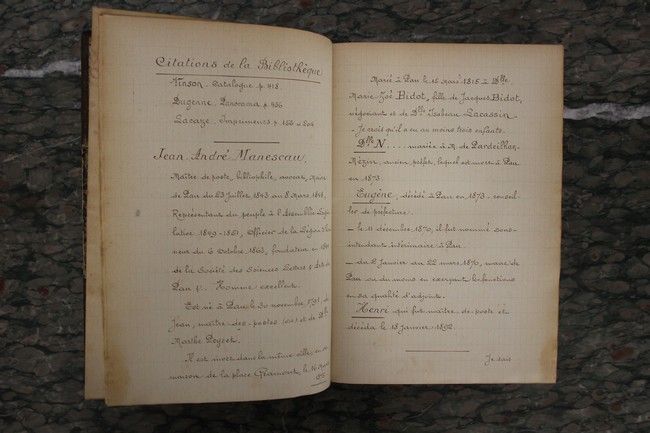 Citations de la Bibliothèque
Vinson. Catalogue p. 418
Dugenne. Panorama p. 436
Lacaze. Imprimeurs p.
Jean André Manescau,
Maître de poste, bibliophile, avocat, Maire
de Pau du 23 Juillet 1843 au 8 Mars 1848,
Représentant du peuple à l'Assemblée Légis
lative 1849-1851, Officier de la Légion d'hon
neur du 6 Octobre 1863, fondateur en
de la Société des Sciences Lettres & Arts de
Pau &. Homme excellent.
Est né à Pau le 30 novembre 1791, de
Jean, maître des postes (sic) et de Dlle
Marthe Peyret.
Il est mort dans la même ville, en sa
maison de la place Gramont, le 16
Marié à Pau le 15 Mars 1815 à Dlle
Marie-Zoé Bidot, fille de Jacques Bidot,
négociant et de Dlle Isabeau Lacassin.
- Je crois qu'il a eu au moins trois enfants.
Dlle N.... mariée à M. de Pardeilhan-
Mézin, ancien préfet, lequel est mort à Pau
en 1873.
Eugène, décédé à Pau en 1873 - conseil-
ler de préfecture.
- le 11 décembre 1870, il fut nommé sous-
intendant intérimaire à Pau
- du 6 Janvier au 22 mars 1870, maire de
Pau ou du moins en exerçant les fonctions
en sa qualité d'adjoint.
Henri qui fut maître de poste et
décéda le 13 Janvier 1892.
Je sais